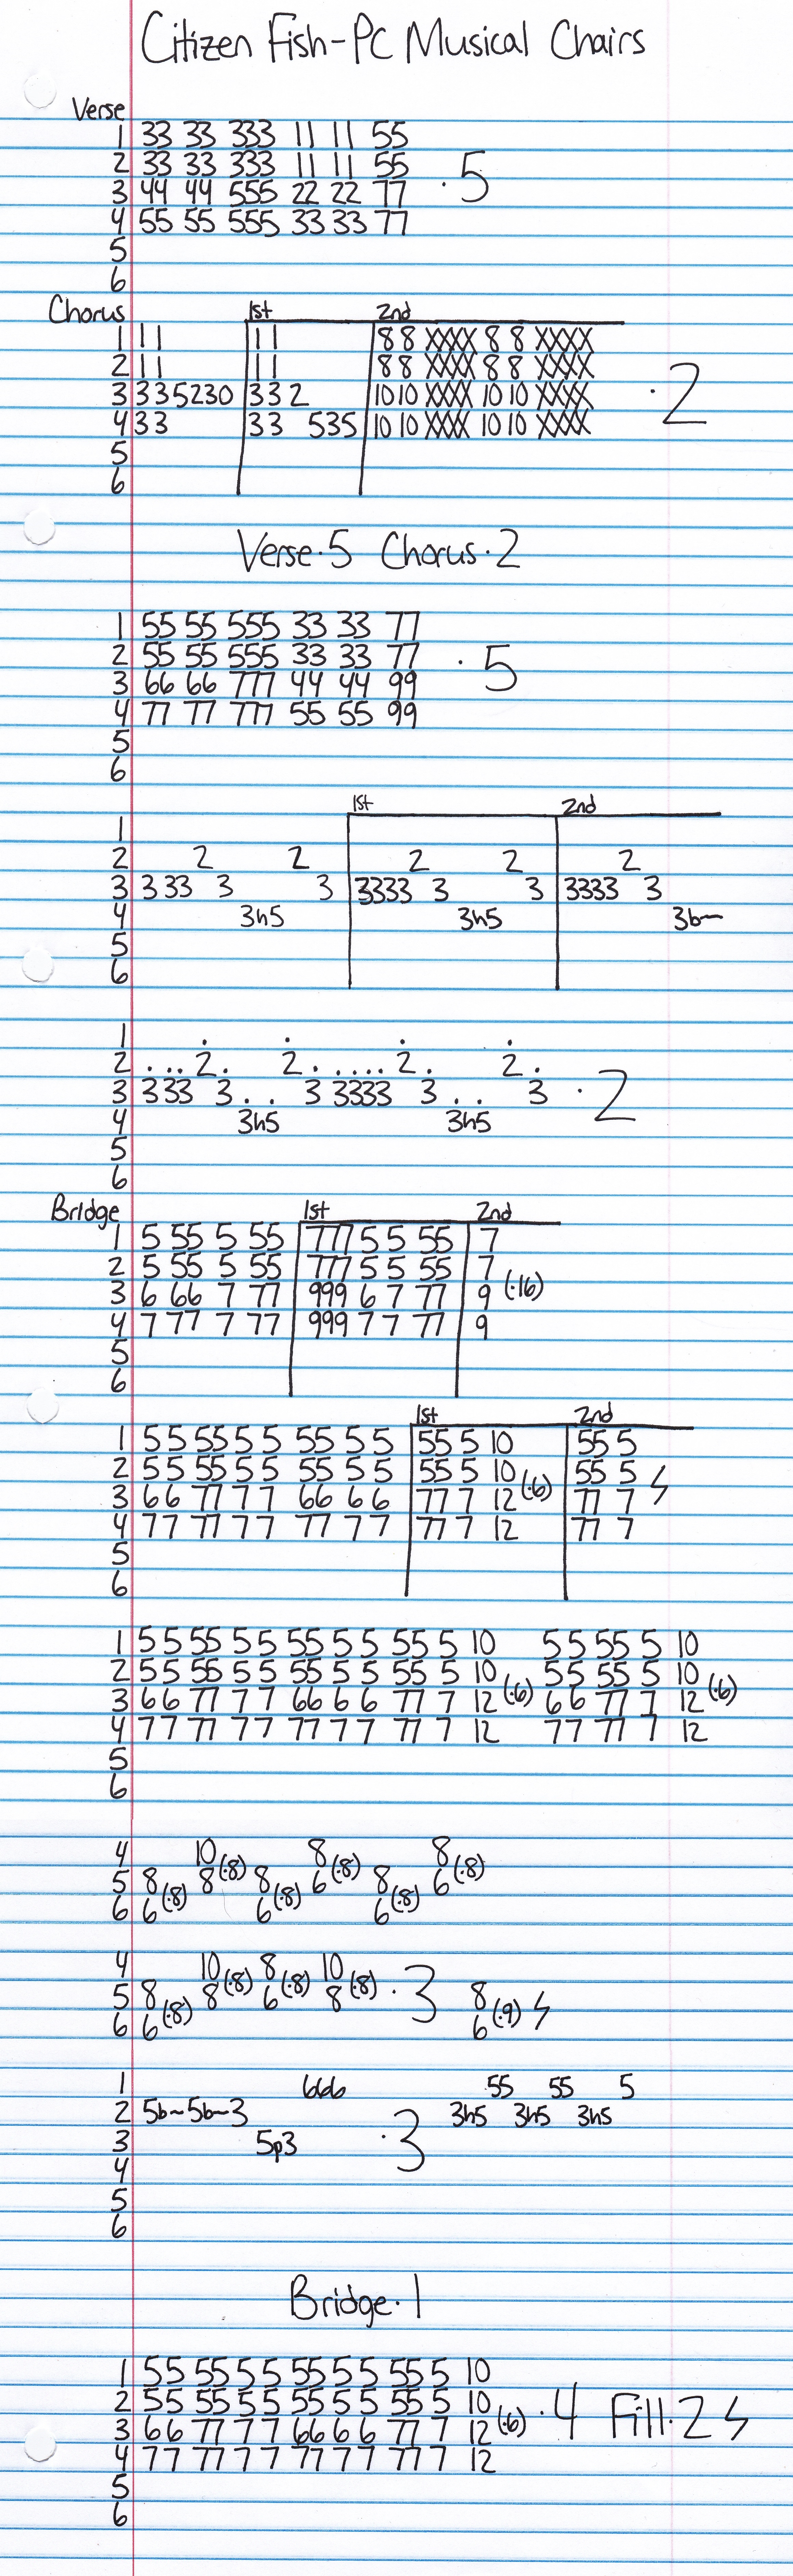 Citizen Fish-PC Musical Chairs
Verse
1 33 33 333 11 11 55
2 33 33 333 11 11 55
3 44 44 555 22 22 77 ·5
4 55 55 555 33 33 77
5
6
Chorus 1st 2nd
1 11 11 88 XXXX 8 8 XXXX
2 11 11 88 XXXX 8 8 XXXX
3 335230 33 2 1010 XXXX 1010 XXXX ·2
4 33 33 535 1010 XXXX 1010 XXXX
5
6
Verse·5 Chorus·2
1 55 55 555 33 33 77
2 55 55 555 33 33 77
3 66 66 777 44 44 99 ·5
4 77 77 777 55 55 99
5
6
1st 2nd
1
2 2 2 2 2 2
3 3 33 3 3 3333 3 3 3333 3
4 3h5 3h5 3b~
5
6
1 . . . .
2 ...2. 2.....2. 2.
3 333 3.. 3 3333 3.. 3 ·2
4 3h5 3h5
5
6
Bridge 1st 2nd
1 5 55 5 55 777 5 5 55 7
2 5 55 5 55 777 5 5 55 7
3 6 66 7 77 999 6 7 77 9 (·16)
4 7 77 7 77 999 7 7 77 9
5
6
1st 2nd
1 55 55 5 5 55 5 5 55 5 10 55 5
2 55 55 5 5 55 5 5 55 5 10 55 5
3 66 77 7 7 66 6 6 77 7 12 (·6) 77 7
4 77 77 7 7 77 7 7 77 7 12 77 7
5
6
1 55 55 5 5 55 5 5 55 5 10 55 55 5 10
2 55 55 5 5 55 5 5 55 5 10 55 55 5 10
3 66 77 7 7 66 6 6 77 7 12 (·6) 66 77 7 12 (·6)
4 77 77 77 77 7 7 77 7 12 77 77 7 12
5
6
4 10 8 8
5 8 8(·8) 8 6(·8) 8 6(·8)
6 6(·8) 6(·8) 6(·8)
4 10 8 10
5 8 8(·8) 6(·8) 8(·8) ·3 8
6 6(·8) 6(·9)
1 666 55 55 5
2 5b~5b~3 3h5 3h5 3h5
3 5p3 ·3
4
5
6
Bridge·1
1 55 55 5 5 55 5 5 55 5 10
2 55 55 5 5 55 5 5 55 5 10
3 66 77 7 7 66 6 6 77 7 12 (·6) ·4 Fill·2
4 77 77 7 7 77 7 7 77 7 12
5
6